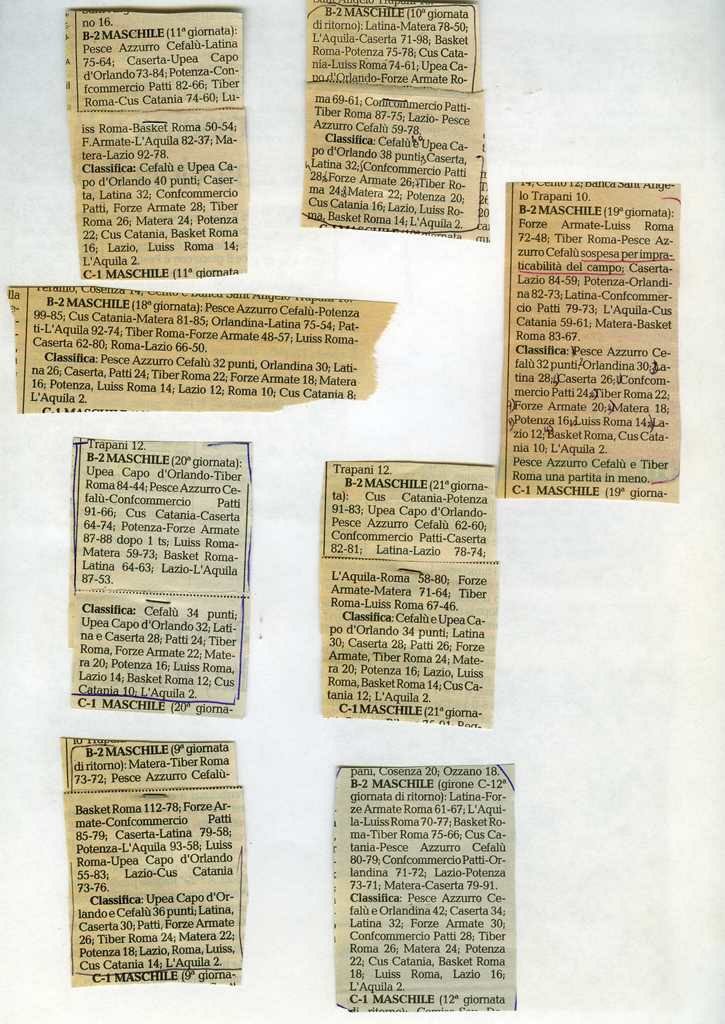 no 16.
B-2 MASCHILE (11ª giornata):
Pesce Azzurro Cefalù-Latina
75-64; Caserta-Upea Capo
d'Orlando 73-84; Potenza-Con-
fcommercio Patti 82-66; Tiber
Roma-Cus Catania 74-60; Lu-
iss Roma-Basket Roma 50-54;
F.Armate-L'Aquila 82-37; Ma-
tera-Lazio 92-78.
Classifica: Cefalù e Upea Ca-
po d'Orlando 40 punti; Caser-
ta, Latina 32; Confcommercio
Patti, Forze Armate 28; Tiber
Roma 26; Matera 24; Potenza
22; Cus Catania, Basket Roma
16; Lazio, Luiss Roma 14;
L'Aquila 2.
C-1 MASCHILE (11ª giornata
Sant'Angelo Trapani 10.
B-2 MASCHILE (10ª giornata
di ritorno): Latina-Matera 78-50;
L'Aquila-Caserta 71-98; Basket
Roma-Potenza 75-78; Cus Cata-
nia-Luiss Roma 74-61; Upea Ca-
po d'Orlando-Forze Armate Ro-
ma 69-61; Confcommercio Patti-
Tiber Roma 87-75; Lazio- Pesce
Azzurro Cefalù 59-78.
Classifica: Cefalù e Upea Ca-
po d'Orlando 38 punti; Caserta,
Latina 32; Confcommercio Patti
28; Forze Armate 26; Tiber Ro-
ma 24; Matera 22; Potenza 20;
Cus Catania 16; Lazio, Luiss Ro-
ma, Basket Roma 14; L'Aquila 2.
14; Cento 12; Banca Sant'Ange-
lo Trapani 10.
B-2 MASCHILE (19ª giornata):
Forze Armate-Luiss Roma
72-48; Tiber Roma-Pesce Az-
zurro Cefalù sospesa per impra-
ticabilità del campo; Caserta-
Lazio 84-59; Potenza-Orlandi-
na 82-73; Latina-Confcommer-
cio Patti 79-73; L'Aquila-Cus
Catania 59-61; Matera-Basket
Roma 83-67.
Classifica: Pesce Azzurro Ce-
falù 32 punti; Orlandina 30; La-
tina 28; Caserta 26; Confcom-
mercio Patti 24; Tiber Roma 22;
Forze Armate 20; Matera 18;
Potenza 16; Luiss Roma 14; La-
zio 12; Basket Roma, Cus Cata-
nia 10; L'Aquila 2.
Pesce Azzurro Cefalù e Tiber
Roma una partita in meno.
C-1 MASCHILE (19ª giorna-
Teramo, Cosenza 14; Cento e Banca Sant'Angelo Trapani 10.
B-2 MASCHILE (18ª giornata): Pesce Azzurro Cefalù-Potenza
99-85; Cus Catania-Matera 81-85; Orlandina-Latina 75-54; Pat-
ti-L'Aquila 92-74; Tiber Roma-Forze Armate 48-57; Luiss Roma-
Caserta 62-80; Roma-Lazio 66-50.
Classifica: Pesce Azzurro Cefalù 32 punti, Orlandina 30; Lati-
na 26; Caserta, Patti 24; Tiber Roma 22; Forze Armate 18; Matera
16; Potenza, Luiss Roma 14; Lazio 12; Roma 10; Cus Catania 8;
L'Aquila 2.
Trapani 12.
B-2 MASCHILE (20ª giornata):
Upea Capo d'Orlando-Tiber
Roma 84-44; Pesce Azzurro Ce-
falù-Confcommercio Patti
91-66; Cus Catania-Caserta
64-74; Potenza-Forze Armate
87-88 dopo 1 ts; Luiss Roma-
Matera 59-73; Basket Roma-
Latina 64-63; Lazio-L'Aquila
87-53.
Classifica: Cefalù 34 punti;
Upea Capo d'Orlando 32; Lati-
na e Caserta 28; Patti 24; Tiber
Roma, Forze Armate 22; Mate-
ra 20; Potenza 16; Luiss Roma,
Lazio 14; Basket Roma 12; Cus
Catania 10; L'Aquila 2.
C-1 MASCHILE (20ª giorna-
Trapani 12.
B-2 MASCHILE (21ª giorna-
ta): Cus Catania-Potenza
91-83; Upea Capo d'Orlando-
Pesce Azzurro Cefalù 62-60;
Confcommercio Patti-Caserta
82-81; Latina-Lazio 78-74;
L'Aquila-Roma 58-80; Forze
Armate-Matera 71-64; Tiber
Roma-Luiss Roma 67-46.
Classifica: Cefalù e Upea Ca-
po d'Orlando 34 punti; Latina
30; Caserta 28; Patti 26; Forze
Armate, Tiber Roma 24; Mate-
ra 20; Potenza 16; Lazio, Luiss
Roma, Basket Roma 14; Cus Ca-
tania 12; L'Aquila 2.
C-1 MASCHILE (21ª giorna-
B-2 MASCHILE (9ª giornata
di ritorno): Matera-Tiber Roma
73-72; Pesce Azzurro Cefalù-
Basket Roma 112-78; Forze Ar-
mate-Confcommercio Patti
85-79; Caserta-Latina 79-58;
Potenza-L'Aquila 93-58; Luiss
Roma-Upea Capo d'Orlando
55-83; Lazio-Cus Catania
73-76.
Classifica: Upea Capo d'Or-
lando e Cefalù 36 punti; Latina,
Caserta 30; Patti, Forze Armate
26; Tiber Roma 24; Matera 22;
Potenza 18; Lazio, Roma, Luiss,
Cus Catania 14; L'Aquila 2.
C-1 MASCHILE (9ª giorna-
pani, Cosenza 20; Ozzano 18.
B-2 MASCHILE (girone C-12ª
giornata di ritorno): Latina-For-
ze Armate Roma 61-67; L'Aqui-
la-Luiss Roma 70-77; Basket Ro-
ma-Tiber Roma 75-66; Cus Ca-
tania-Pesce Azzurro Cefalù
80-79; Confcommercio Patti-Or-
landina 71-72; Lazio-Potenza
73-71; Matera-Caserta 79-91.
Classifica: Pesce Azzurro Ce-
falù e Orlandina 42; Caserta 34;
Latina 32; Forze Armate 30;
Confcommercio Patti 28; Tiber
Roma 26; Matera 24; Potenza
22; Cus Catania, Basket Roma
18; Luiss Roma, Lazio 16;
L'Aquila 2.
C-1 MASCHILE (12ª giornata